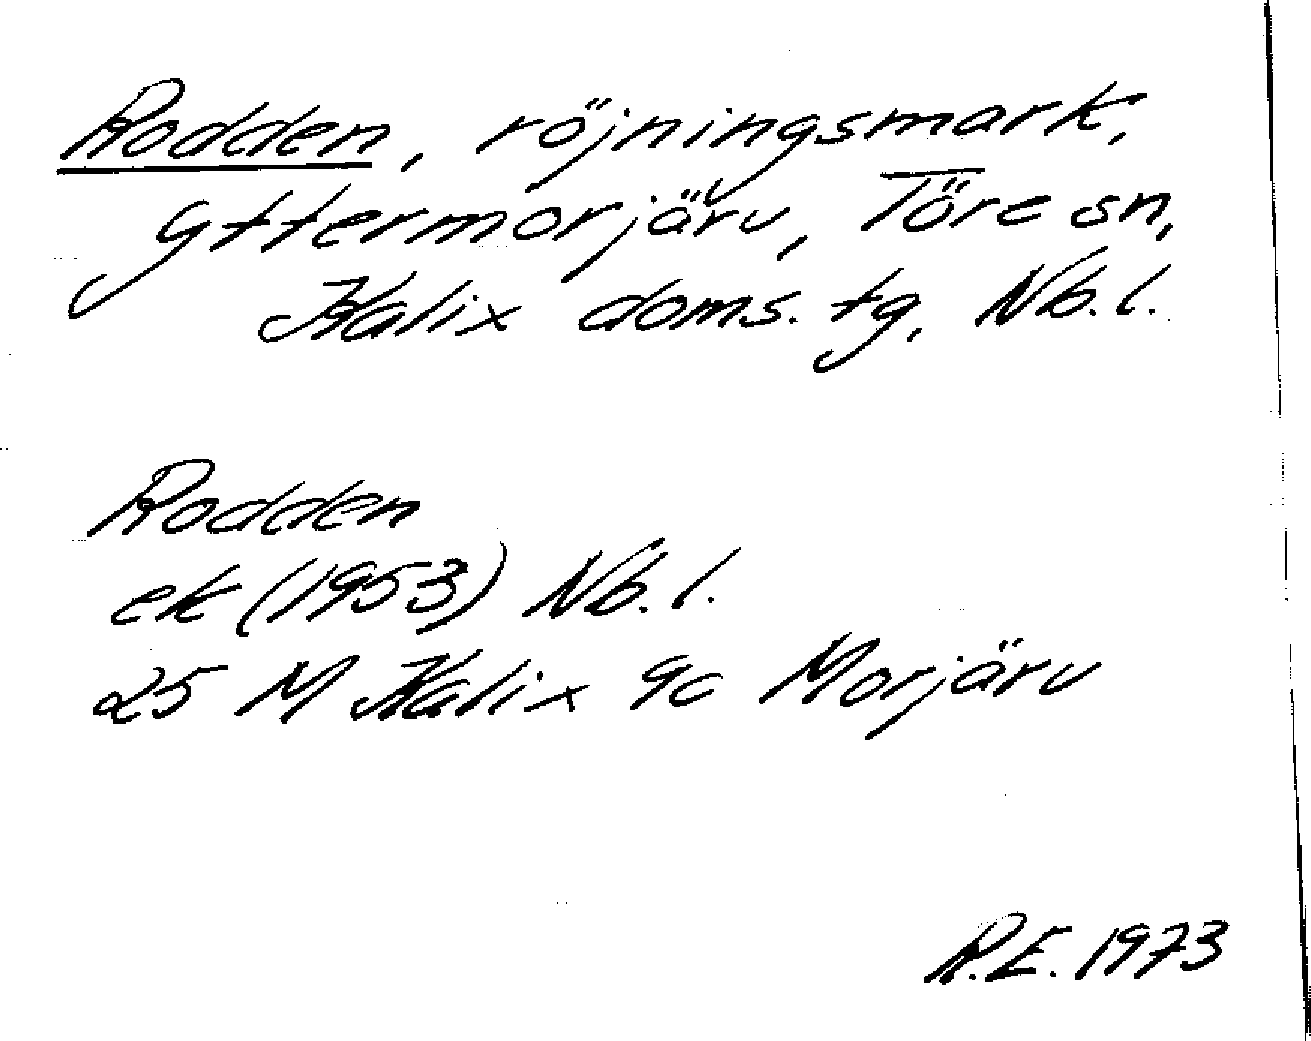 Rodden, röjningsmark,
Yttermorjärv, Töre sn,
Kalix doms. tg, Nb. l.
Rodden
ek (1953) Nb. l.
25 M Kalix 9c Morjärv
R.E. 1973